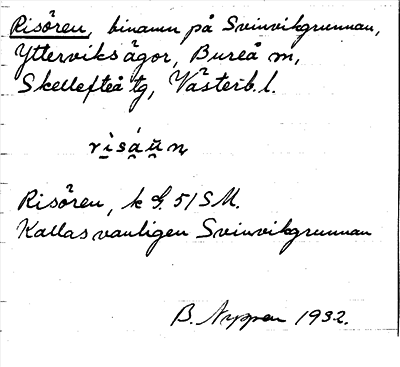 Risören, binamn på Svinvikgrunnan,
Ytterviks ägor, Bureå sn,
Skellefteå tg, Västerb. l.
Risören, k G. 51 SM.
Kallas vanligen Svinvikgrunnan
B. Nyppen 1932.